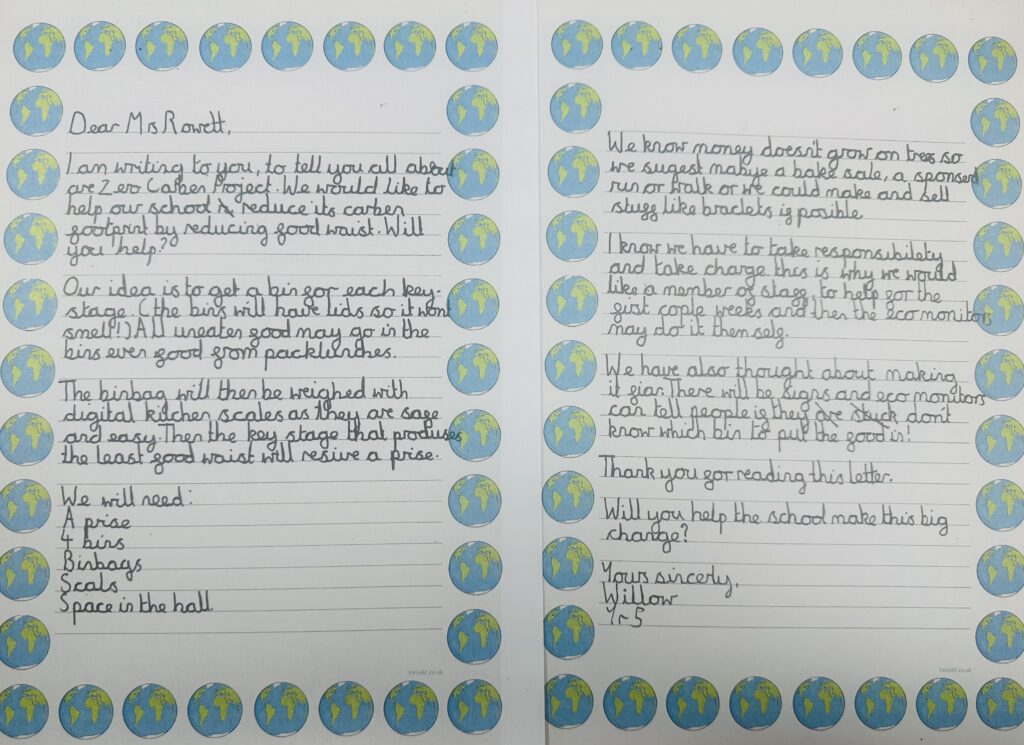 Dear Mrs Rowett,
I am writing to you, to tell you all about
are Zero Carben Project. We would like to
help our school reduce its carben
footprint by reducing food waist. Will
you help?
Our idea is to get a bin for each key-
stage. (the bins will have lids so it wont
smell!) All uneaten food may go in the
bins even food from packlunches.
The binbag will then be weighed with
digital kitchen scales as they are safe
and easy. Then the key stage that produses
the least food waist will resive a prise.
We will need:
A prise
4 bins
Binbags
Scals
Space in the hall.
twinkl.co.uk
We know money doesn't grow on trees so
we sugest a bake sale, a sponserd
run or walk or we could make and sell
stuff like braclets if posible.
I know we have to take responsibility
and take charge this is why we would
like a member of staff, to help for the
fist cople weeks and then the eco monitors
may do it themself.
We have also thought about making
it fiar. There will be signs and eco monitors
can tell people if they are stuck don't
know which bin to put the food in!
Thank you for reading this letter.
Will you help the school make this big
change?
Yours sincerly,
Willow
Yr 5
twinkl.co.uk